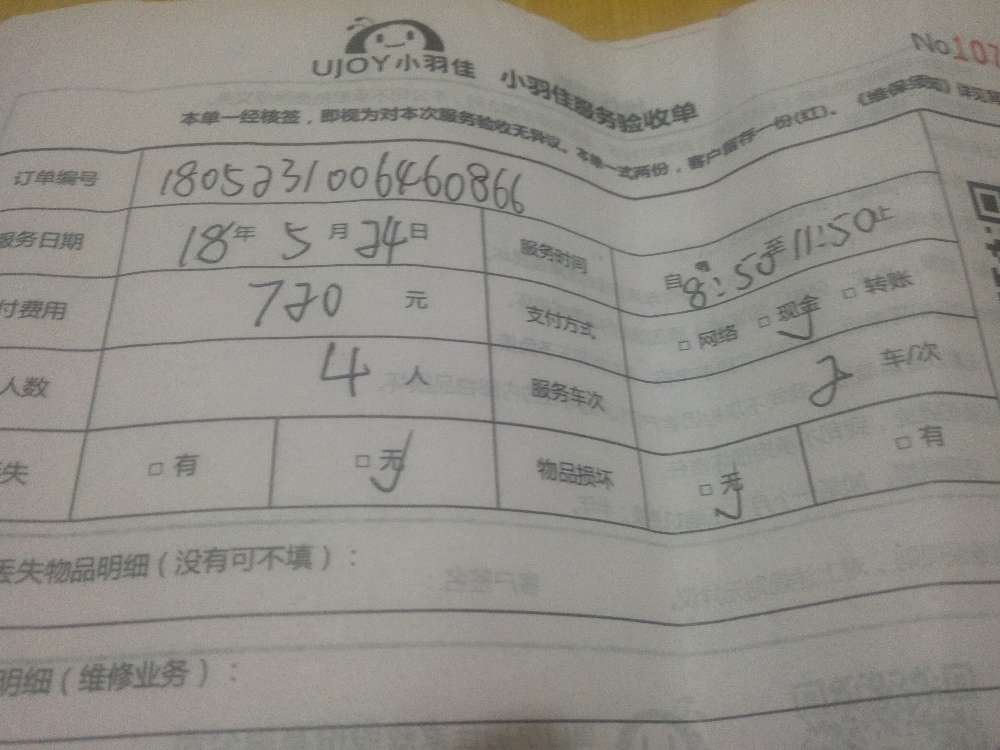 No107
UJOY小羽佳 小羽佳服务验收单
本单一经核签，即视为对本次服务验收无异议。本单一式两份，客户留存一份(红)。《维保须知》详见背
订单编号 1805231006460866
服务日期 18年 5月 24日 服务时间 自 8:50至 11:50止
付费用 720 元 支付方式 □ 网络 □ 现金 □ 转账
人数 4 人 服务车次 2 车/次
失 □ 有 □ 无 物品损坏 □ 无 □ 有
丢失物品明细（没有可不填）：
明细（维修业务）：